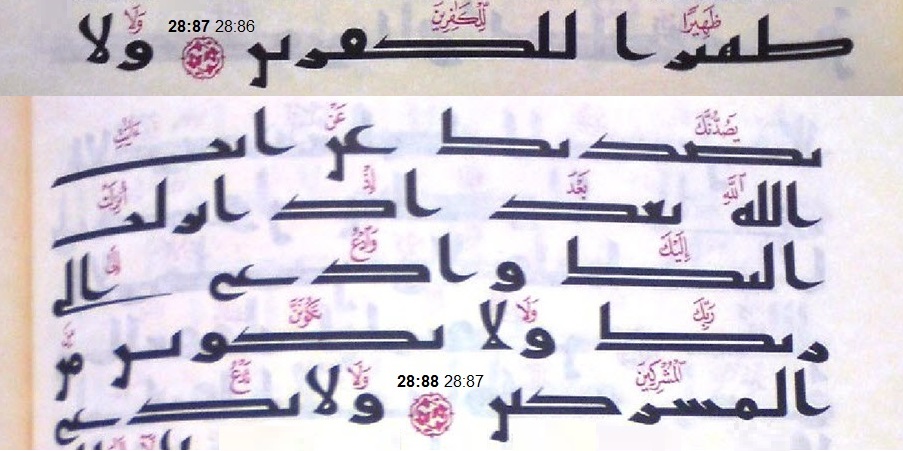 ظهيرا للكفرين 28:87 28:86 ولا
يصدنك عن ايت
الله بعد اذ انزلت
اليك وادع الى
ربك ولا تكونن من
المشركين 28:88 28:87 ولا تدع